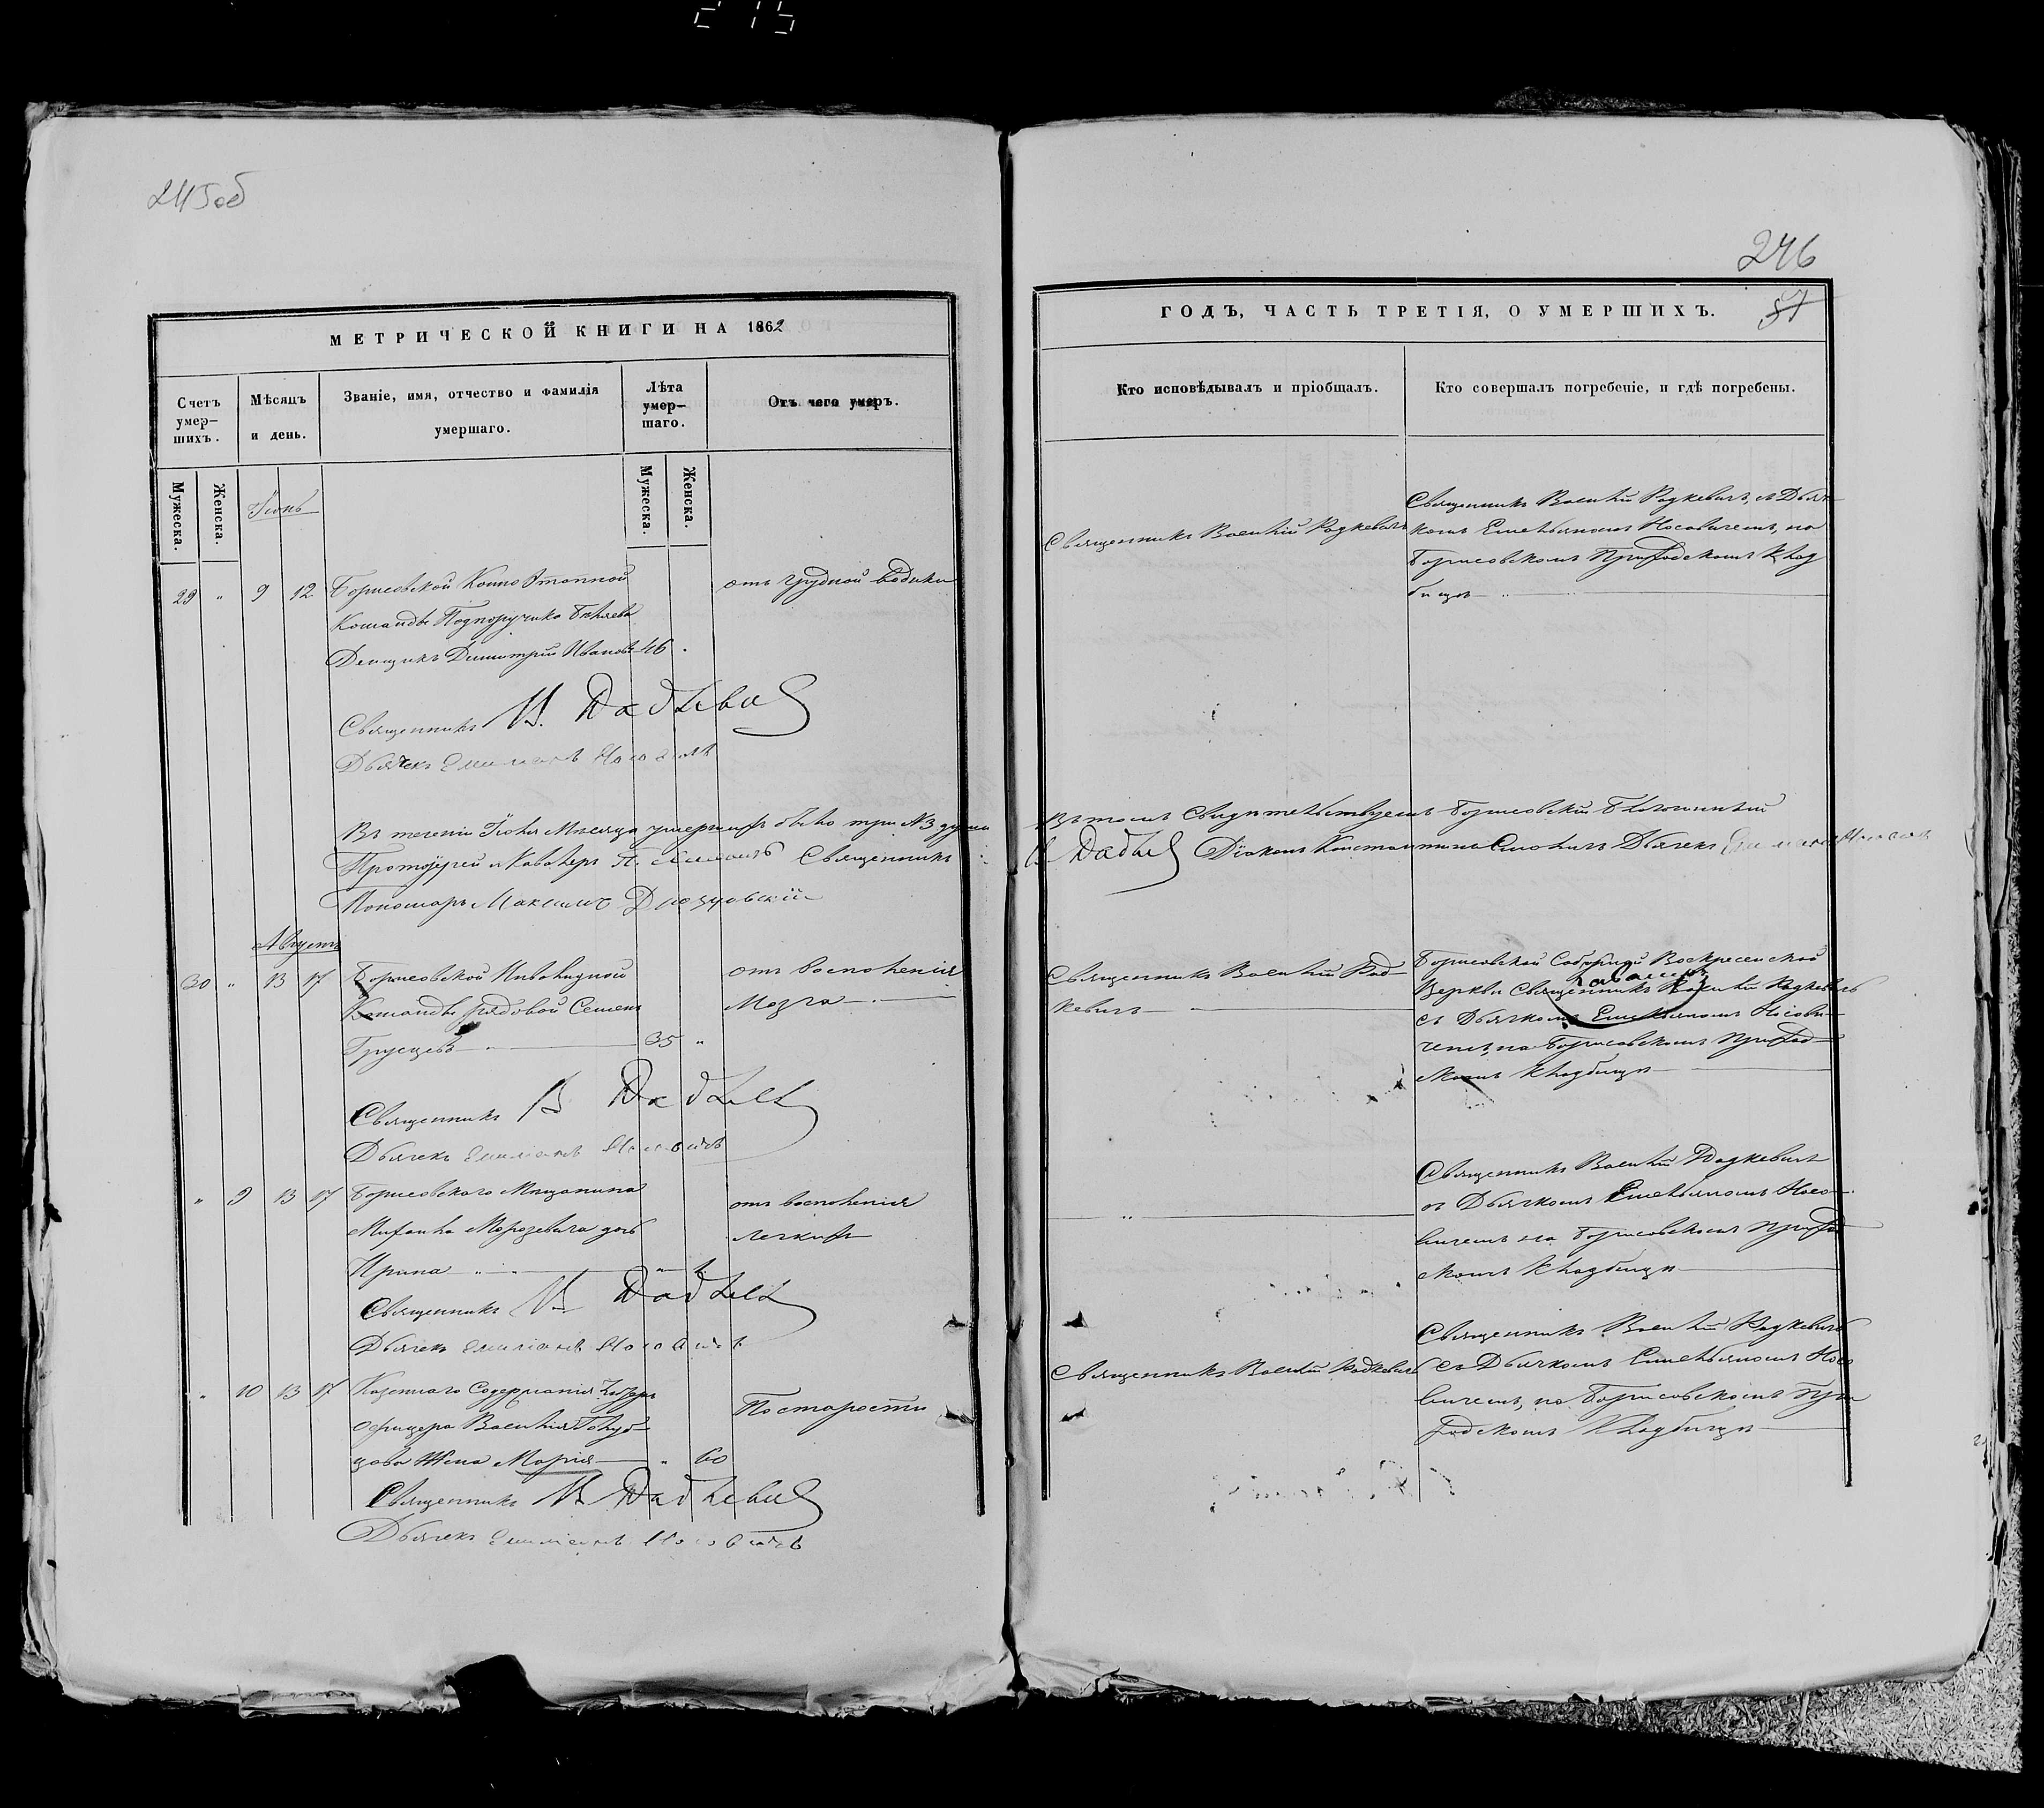 245об
246
МЕТРИЧЕСКОЙ КНИГИ НА 1862
Счетъ умер-шихъ.
Мѣсяцъ и день.
Званіе, имя, отчество и фамилія умершаго.
Лѣта умер-шаго.
Отъ чего умеръ.
Мужеска.
Женска.
Мужеска.
Женска.
Іюнь
29 " 9 12 Борисовской Конно Этапной отъ грудной водянки
Команды Подпоручика Бѣляева
Денщикъ Димитрій Ивановъ 46
Священникъ В. Радкевич
Дьячекъ Емилианъ Носовичъ
Въ теченіи Іюня Мѣсяца умершихъ было три №3 души
Протоіерей и Кавалеръ П. Священникъ
Пономарь Максимъ
Августъ
30 " 13 17 Борисовской Инвалидной отъ восполенія
Команды рядовой Семенъ Мозга
Грусцевъ 35 "
Священникъ В Радкевич
Дьячекъ Емилианъ Носовичъ
" 9 13 17 Борисовскаго Мѣщанина отъ восполенія
Михаила Морозевича дочь легкихъ
Ирина
Священникъ В Радкевич
Дьячекъ Емилианъ Носовичъ
" 10 13 17 Казеннаго Содержанія Унтеръ
Офицера Василія Голуб- По старости
цова Жена Марія " 60
Священникъ В Радкевич
Дьячекъ Емилианъ Носовичъ
ГОДЪ, ЧАСТЬ ТРЕТІЯ, О УМЕРШИХЪ.
Кто исповѣдывалъ и пріобщалъ.
Кто совершалъ погребеніе, и гдѣ погребены.
Священникъ Василій Радкевичъ
Священникъ Василій Радкевичъ, съ Дьяч-
комъ Емельяномъ Носовичемъ, на
Борисовскомъ Приходскомъ Клад
бищѣ
Въ томъ свидѣтельствуемъ Борисовскій Благочинный
В Радкевич Діаконъ Константинъ Дьячекъ Емилианъ Носович
Священникъ Василій Рад-
кевичъ
Борисовской Соборной Воскресенской
Церкви Священникъ Василій Радкевичъ
съ Дьячкомъ Емельяномъ Носови-
чемъ, на Борисовскомъ Приход-
скомъ Кладбищѣ
Священникъ Василій Радкевичъ
съ Дьячкомъ Емельяномъ Носо-
вичемъ на Борисовскомъ Приход
скомъ Кладбищѣ
Священникъ Василій Радкевичъ
Священникъ Василій Радкевичъ
съ Дьячкомъ Емельяномъ Носо
вичемъ, на Борисовскомъ При
ходскомъ Кладбищѣ